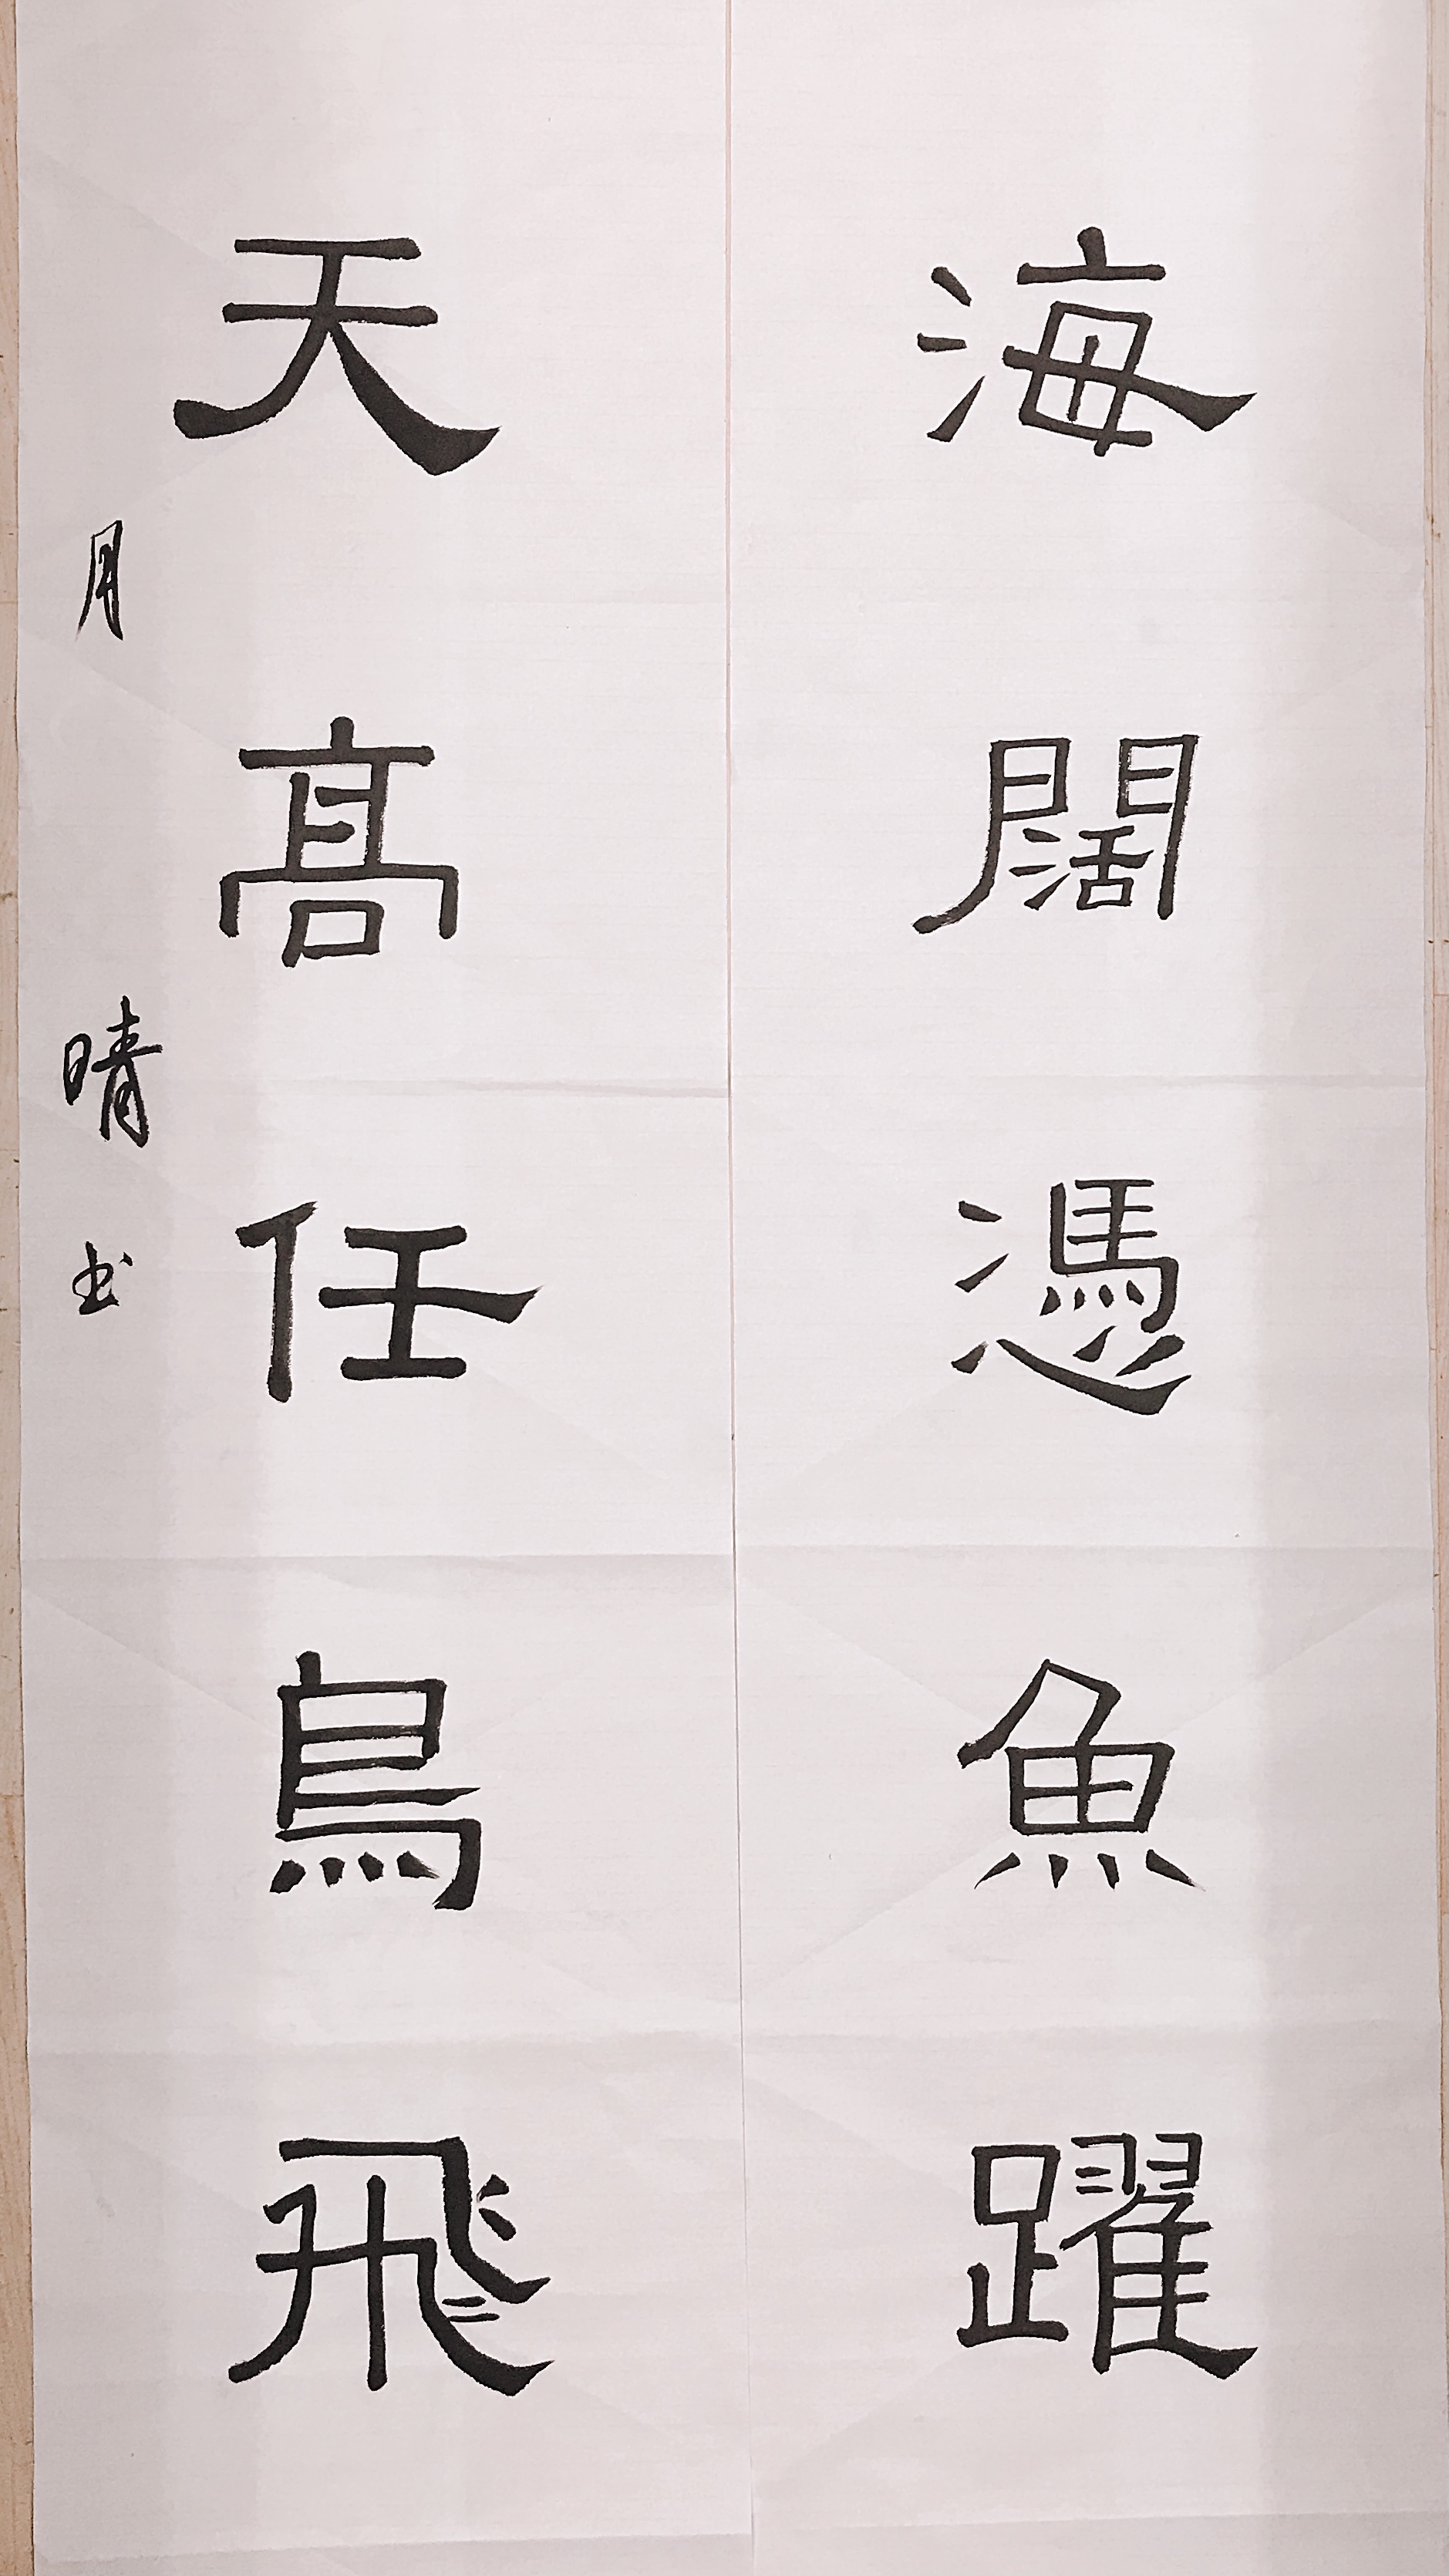 海闊憑魚躍
天高任鳥飛
月晴书